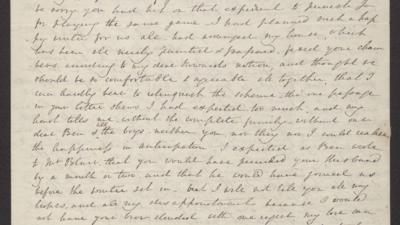 be sorry you had her, or that expedient to punish
for playing the same game. I had planned such a hap
py winter for us all had arranged my house, which
has been all newly painted & prepared, fixed your cham
bers according to my dear brother's notion, and thought we
should be so comfortable & agreeable all together, that I
can hardly bear to relinquish the scheme. tho' one passage
in your letter shews I had expected too much, and my
heart tells me without the complete family - without our
dear Ben & the boys - neither you nor they nor I could realize
the happiness in anticipation. I expected as Ben wrote
to Mr that you would have preceded your Husband
by a month or two, and that he would have joined us
before the winter set in. but I will not tell you all my
hopes, and all my disappointments because I would
not have your brow clouded with one regret my love can